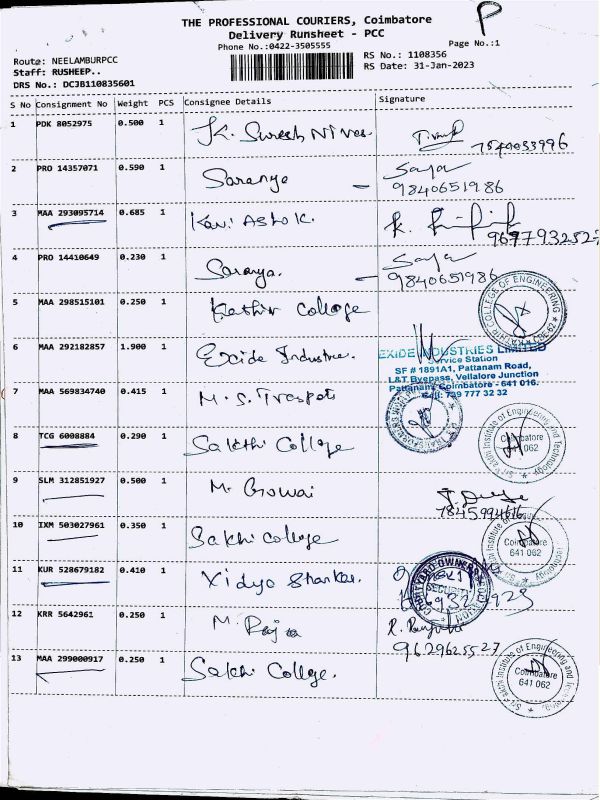 P
THE PROFESSIONAL COURIERS, Coimbatore
Delivery Runsheet - PCC
Phone No.:0422-3505555
Page No.:1
Route: NEELAMBURPCC
RS No.: 1108356
Staff: RUSHEEP..
RS Date: 31-Jan-2023
DRS No.: DCJB110835601
S No Consignment No Weight PCS Consignee Details Signature
1 PDK 8052975 0.500 1 K. Suresh
2 PRO 14357071 0.590 1 Saranya
9840651986
3 MAA 293095714 0.685 1 Kavi Ashok.
4 PRO 14410649 0.230 1 Saranya.
9840651986
5 MAA 298515101 0.250 1 Kathir College
COLLEGE OF ENGINEERING
6 MAA 292182857 1.900 1 Exide Industries.
EXIDE INDUSTRIES LIMITED
Service Station
SF # 1891A1, Pattanam Road,
L&T Byepass, Vellalore Junction
Pattanam, Coimbatore - 641 016.
Cell: 739 777 32 32
7 MAA 569834740 0.415 1 M. S.
8 TCG 6008884 0.290 1 Sakthi College
Institute of Engineering and Technology
Coimbatore
641 062
9 SLM 312851927 0.500 1 M.
7845994616
10 IXM 503027961 0.350 1 Sakthi College
Coimbatore
641 062
11 KUR 528679182 0.410 1 Vidya Shankar.
SECURITY
12 KRR 5642961 0.250 1 M. Raja
9629625527
13 MAA 299000917 0.250 1 Sakthi College.
Institute of Engineering and
Coimbatore
641 062